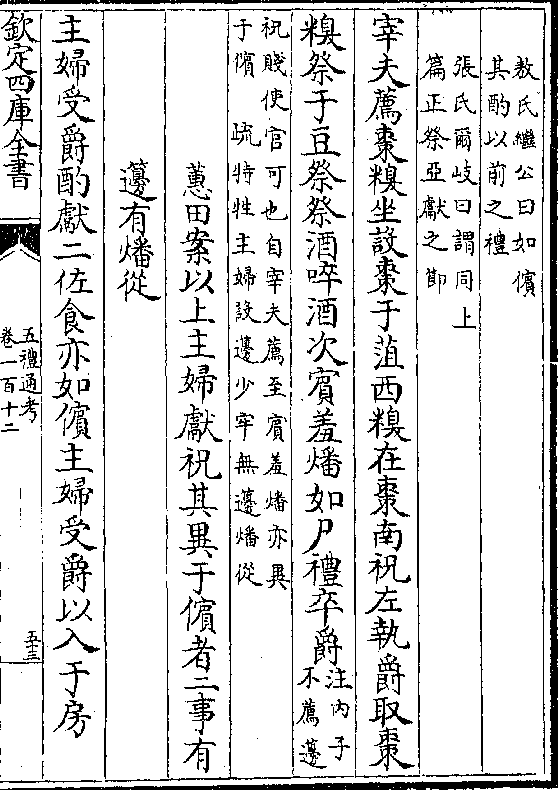 敖氏繼公曰如儐
其酌以前之禮
張氏爾岐曰謂同上
篇正祭亞獻之節
宰夫薦棗糗坐設棗于菹西糗在棗南祝左執爵取棗
糗祭于豆祭祭酒啐酒次賓羞燔如尸禮卒爵注內子
不薦籩
祝賤使官可也自宰夫薦至賓羞燔亦異
于儐 疏特牲主婦設籩少牢無籩燔從
蕙田案以上主婦獻祝其異于儐者二事有
籩有燔從
主婦受爵酌獻二佐食亦如儐主婦受爵以入于房
欽定四庫全書
五禮通考
卷一百十二
五十三